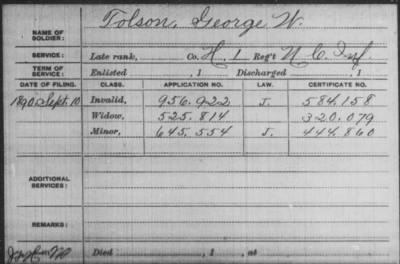 Tolson, George W.
NAME OF SOLDIER:
SERVICE: Late rank, Co. H. 1 Reg't N. C. Inf
TERM OF SERVICE: Enlisted , 1 Discharged , 1
DATE OF FILING. CLASS. APPLICATION NO. LAW. CERTIFICATE NO.
1890 Sept. 10 Invalid, 956.922 J. 584.158
Widow, 525.814 320.079
Minor, 645.554 J. 444.860
ADDITIONAL SERVICES:
REMARKS:
Died , 1 , at